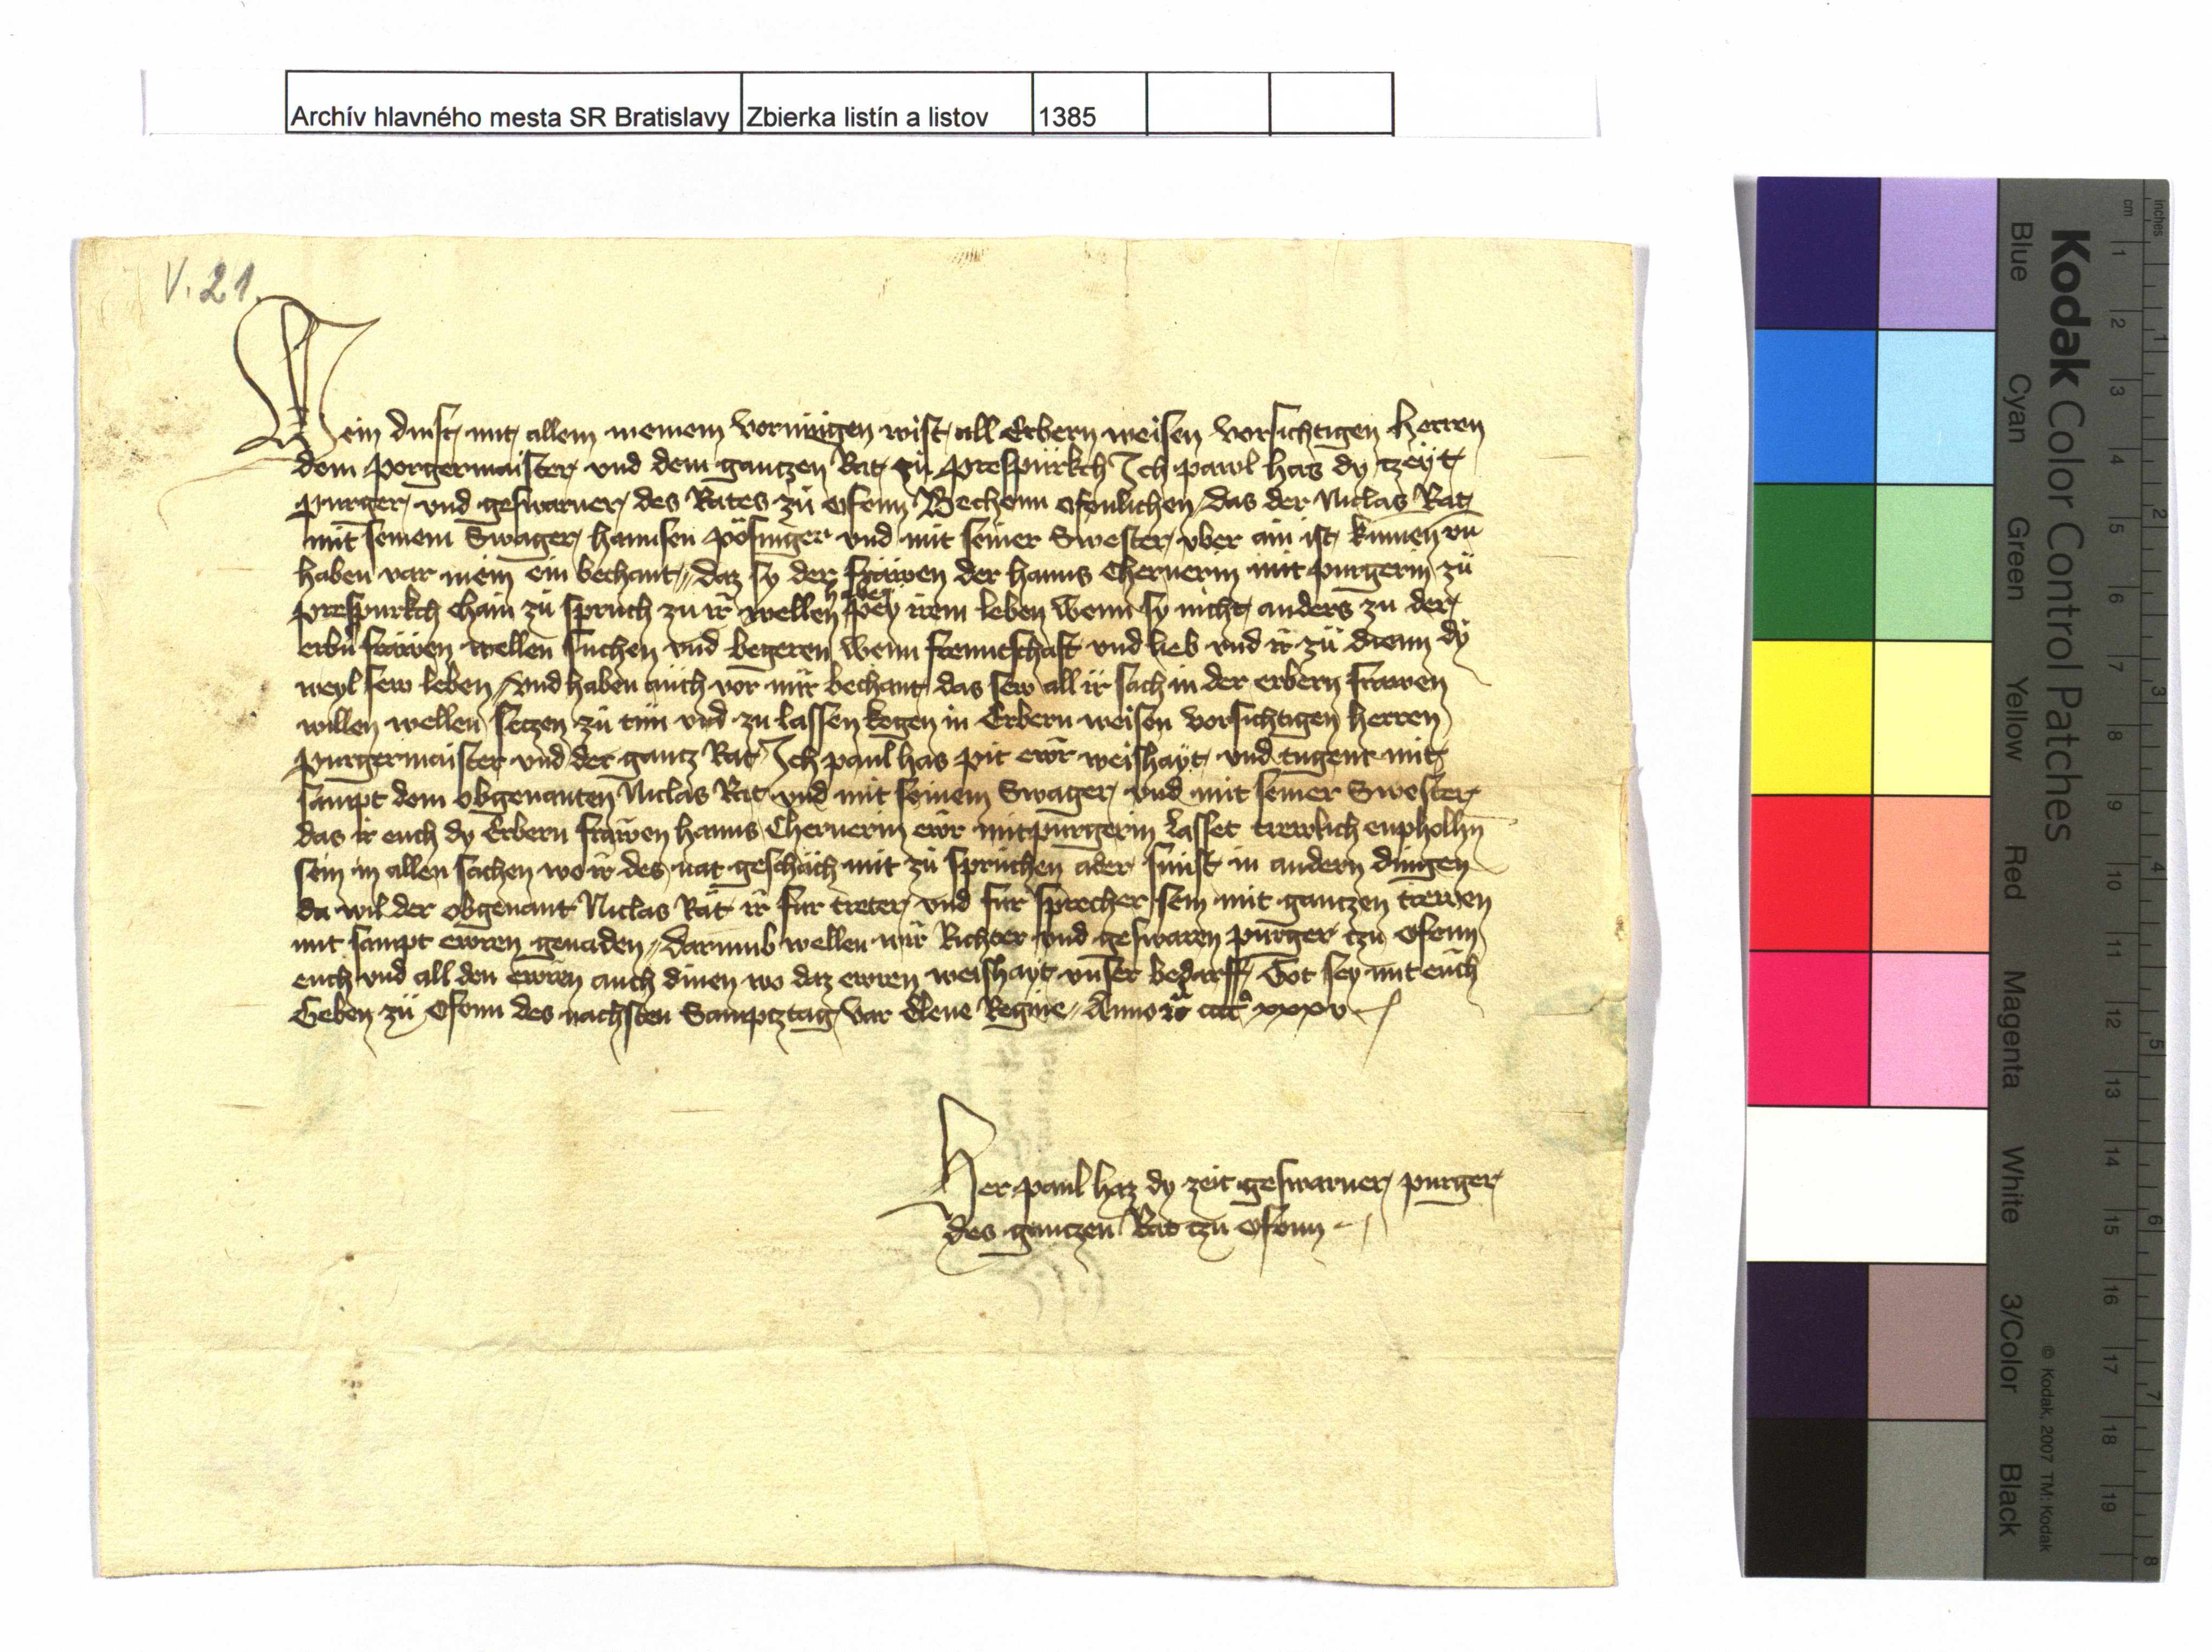 Archív hlavného mesta SR Bratislavy Zbierka listín a listov 1385
V. 21.
Mein dinst mit allem meinem vormügen wist all Erbern weisen vorsichtigen herren
dem porgermaister und dem gantzen Rat zü prespürkch Ich pawl has dy tzeyt
purger und geswarner des Rates zü Ofenn Bechenn ofenlichen das der Niclas Rat
mit seinem Swager hannsen pösinger und mit seiner Swester vber ain ist kumen vn
haben var mein ein bechant daz sy der frawen der hanns Chernerin mit purgerin zü
prespurkch chain zü sprüch zu ir wellen haben pey irem leben wenn sy nicht anders zu der
erbn frawen wellen suchen und begeren wenn freuntschaft und lieb und ir zü dienn dy
weyl sew leben und haben auch vor mir bechant das sew all ir sach in der erbern frawen
willen wellen setzen zü tün und zu lassen kegen in Erbern weisen vorsichtigen herren
purgermaister und der gantz Rat Ich paul has pit ewr weishayt und tugent mit
sampt dem obgenanten Niclas Rat und mit seinem Swager und mit seiner Swester
das ir euch dy Erbern frawen hanns Chernerin ewr mitpurgerin lasset trewlich enpholhn
sein in allen sachen wo ir des nat geschäch mit zü sprüchen ader sünst in andern dingen
da wil der obgenant Niclas Rat ir für treter und für sprecher sein mit gantzen trewen
mit sampt ewren genaden darumb wellen wir Richter und geswaren purger tzu Ofenn
euch und all den ewren auch dinen wo daz ewren weishayt unser bedarff Got sey mit euch
Geben zü Ofenn des nachsten Samptztag var Elene Regine Anno cccc xxxv
Her paul haz dy zeit geswarner purger
des gantzen Rat tzu Ofenn
Kodak Color Control Patches
Blue Cyan Green Yellow Red Magenta White 3/Color Black
© Kodak, 2007 TM: Kodak
inches 1 2 3 4 5 6 7 8
cm 1 2 3 4 5 6 7 8 9 10 11 12 13 14 15 16 17 18 19